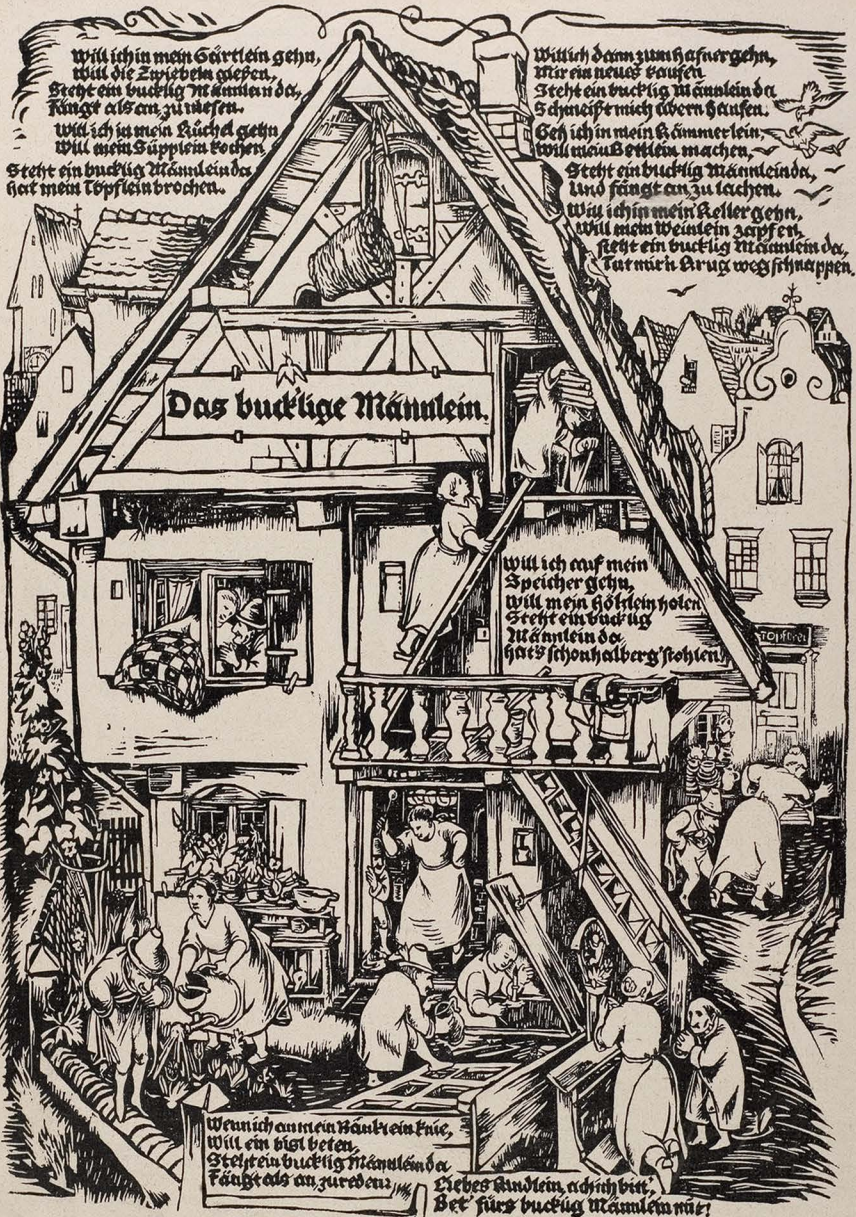 Will ich in mein Gärtlein gehn,
Will die Zwiebeln gießen,
Steht ein bucklig Männlein da,
Fängt als an zu niesen.
Will ich in mein Küchel gehn
Will mein Süpplein kochen,
Steht ein bucklig Männlein da
hat mein Töpflein brochen.
Will ich dann zum Hafner gehn,
Mir ein neues kaufen
Steht ein bucklig Männlein da
Schmeißt mich übern Haufen.
Geh ich in mein Kämmerlein,
Will mein Bettlein machen,
Steht ein bucklig Männlein da,
Und fängt an zu lachen.
Will ich in mein Keller gehn,
Will mein Weinlein zapfen,
steht ein bucklig Männlein da,
Tut mir'n Krug wegschnappen.
Das bucklige Männlein.
Will ich auf mein
Speicher gehn,
Will mein Hölzlein holen
Steht ein bucklig
Männlein da
hat's schon halber g'stohlen
Töpferei
Wenn ich an mein Bänklein knie,
Will ein bisl beten,
Steht ein bucklig Männlein da
Fängt als an zu reden:
Liebes Kindlein, ach ich bitt',
Bet' fürs bucklig Männlein mit!